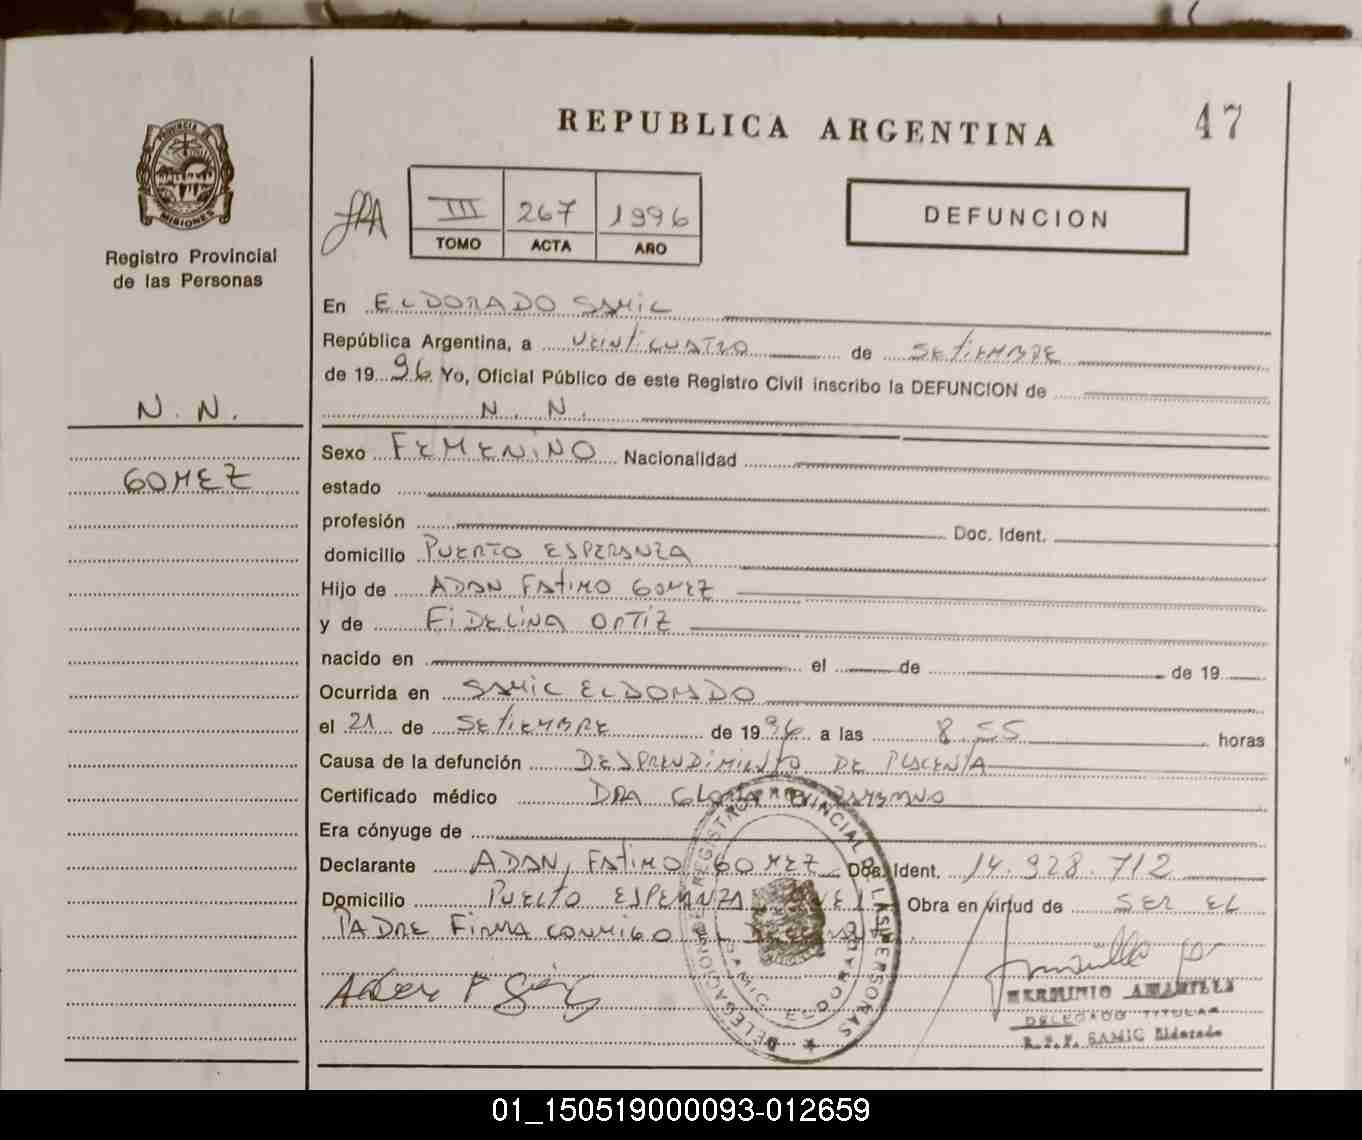 REPUBLICA ARGENTINA
47
PROVINCIA DE
MISIONES
Registro Provincial
de las Personas
III 267 1996
TOMO ACTA AÑO
DEFUNCION
En ELDORADO SAMIC
República Argentina, a VEINTICUATRO de SETIEMBRE
de 19 96. Yo, Oficial Público de este Registro Civil inscribo la DEFUNCION de
N. N.
N. N.
GOMEZ
Sexo FEMENINO Nacionalidad
estado
profesión Doc. Ident.
domicilio PUERTO ESPERANZA
Hijo de ADAN FATIMO GOMEZ
y de FIDELINA ORTIZ
nacido en el de de 19
Ocurrida en SAMIC ELDORADO
el 21 de SETIEMBRE de 1996 a las 8.55 horas
Causa de la defunción DESPRENDIMIENTO DE PLACENTA
Certificado médico DRA GLORIA
Era cónyuge de
Declarante ADAN, FATIMO GOMEZ Doc. Ident. 14.928.712
Domicilio PUERTO ESPERANZA Obra en virtud de SER EL
PADRE FIRMA CONMIGO
DELEGACION DE REGISTRO PROVINCIAL DE LAS PERSONAS
SAMIC ELDORADO
HERMINIO AMARILLA
DELEGADO TITULAR
R.P.P. SAMIC Eldorado
01_150519000093-012659